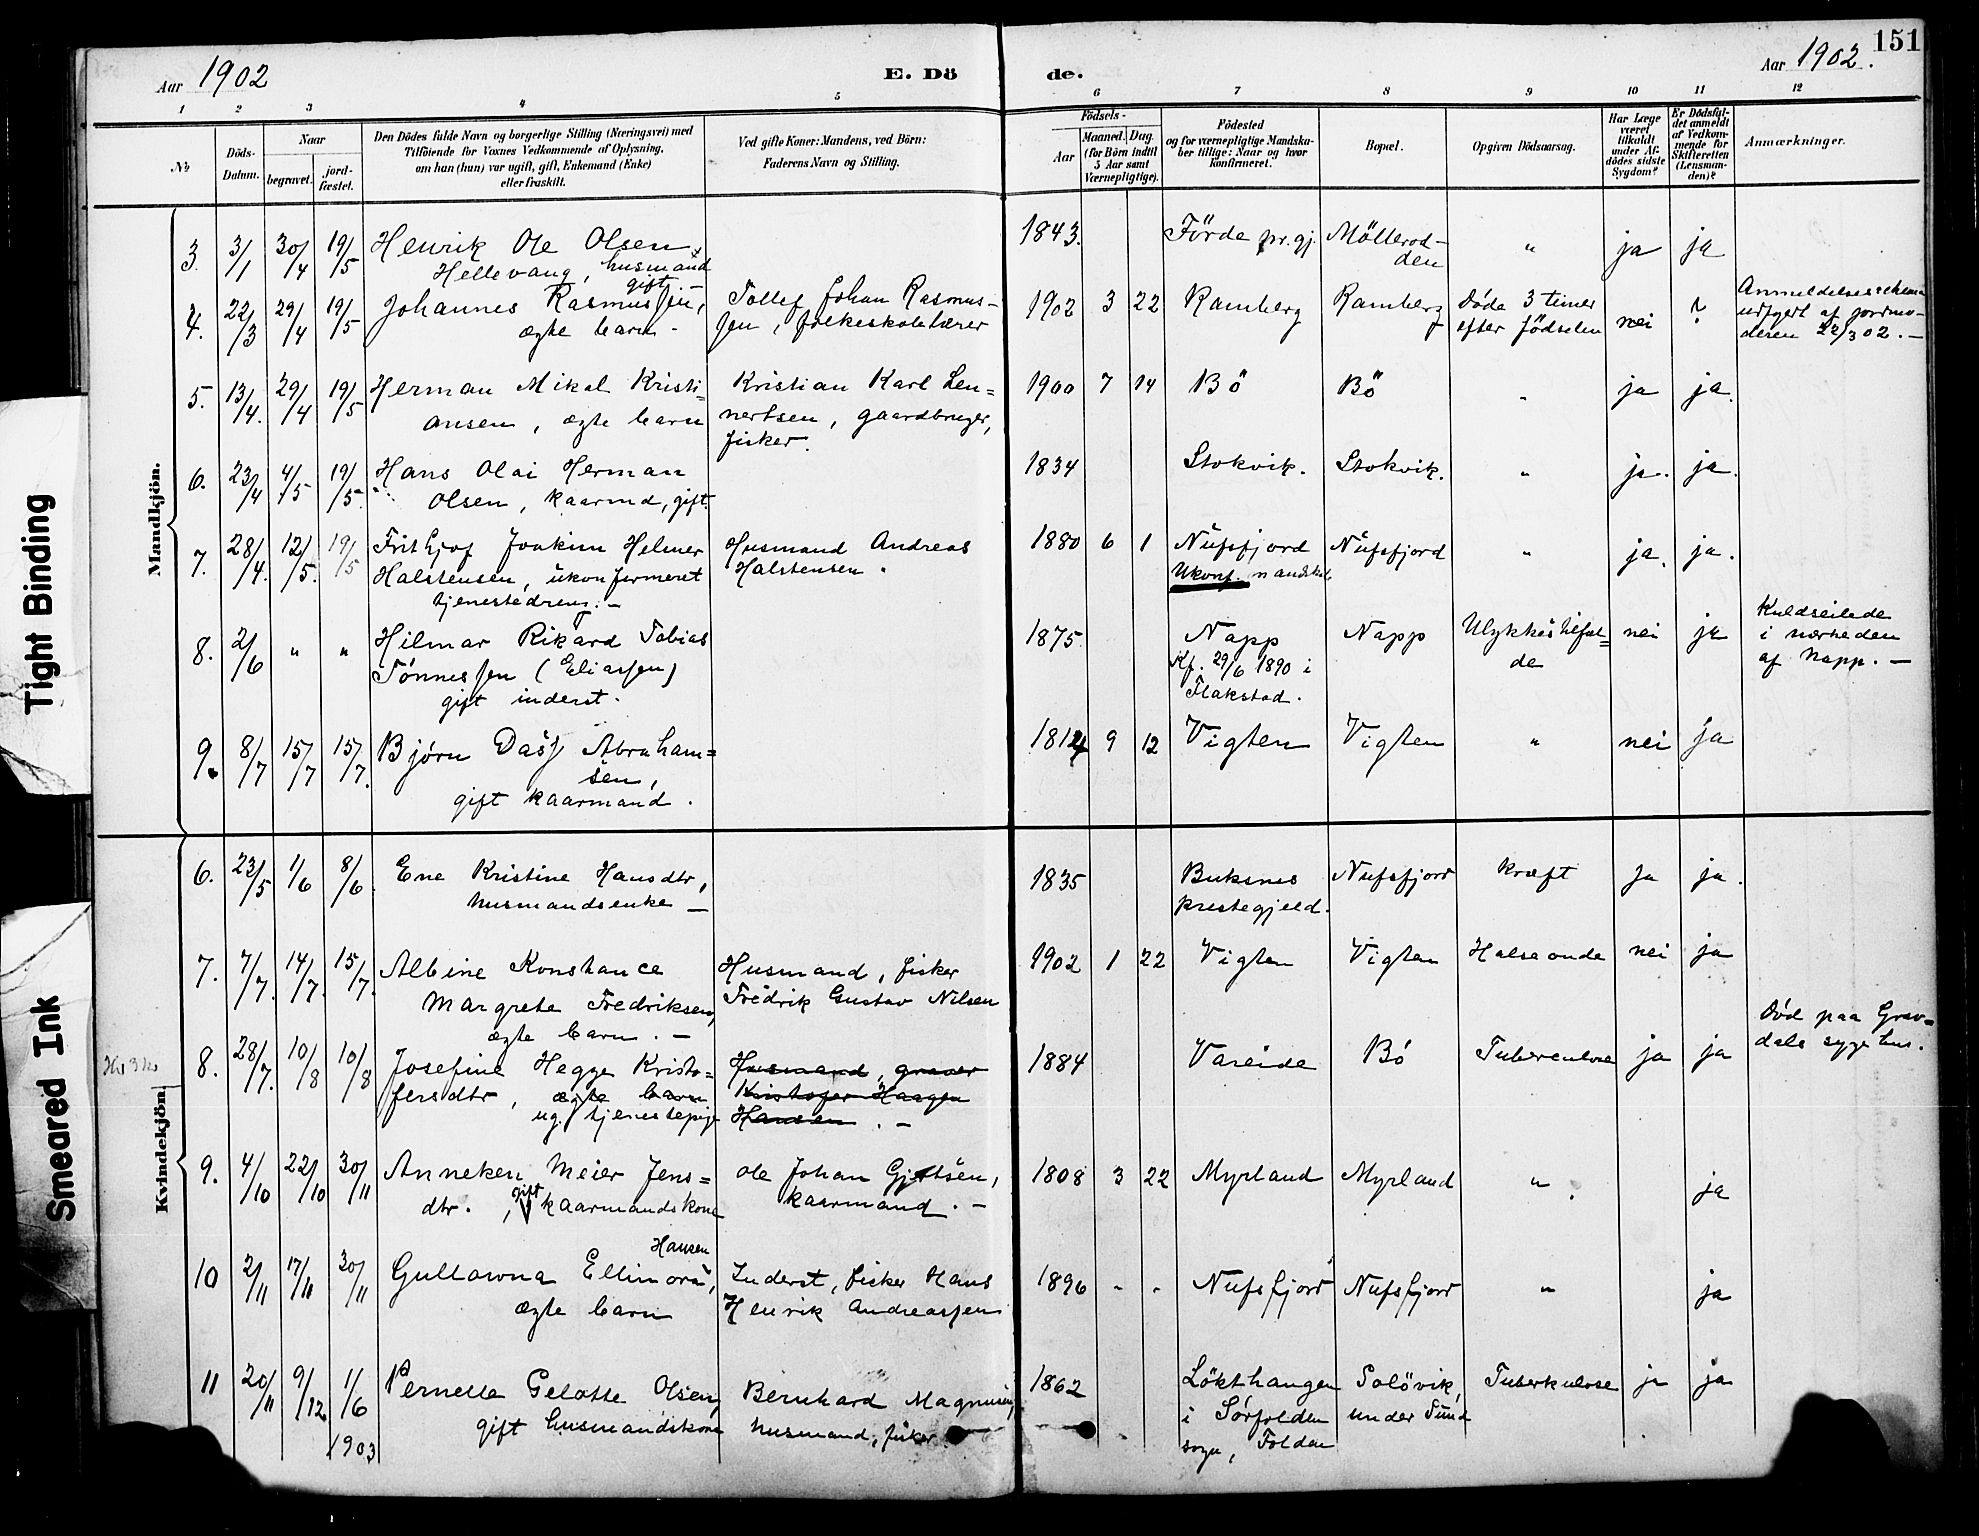 151
Aar 1902
E. Dö
de.
Aar 1902.
1 2 3 4 5 6 7 8 9 10 11 12
No
Döds-
Datum.
Naar
begravet.
jord-
fæstet.
Den Dödes fulde Navn og borgerlige Stilling (Næringsvei) med
Tilföiende for Voxnes Vedkommende af Oplysning,
om han (hun) var ugift, gift, Enkemand (Enke)
eller fraskilt.
Ved gifte Koner: Mandens, ved Börn:
Faderens Navn og Stilling.
Födsels-
Aar
Maaned.
Dag.
(for Börn indtil
5 Aar samt
Værnepligtige).
Födested
og for værnepligtige Mandska-
ber tillige: Naar og hvor
konfirmeret.
Bopæl.
Opgiven Dödsaarsag.
Har Læge
været
tilkaldt
under Af-
dödes sidste
Sygdom?
Er Dödsfal-
det anmeldt
af Vedkom-
mende for
Skifteretten
(Lensman-
den)?
Anmærkninger.
Mandkjön.
3. 3/1 30/4 19/5 Henrik Ole Olsen 1843. Förde pr.gj. Möllerod- " ja ja
Hellevang, husmand den
gift -
4. 22/3 29/4 19/5 Johannes Rasmussen, Tollef Johan Rasmus- 1902 3 22 Ramberg Ramberg Døde 3 timer nei ? Anmeldelsesschema
ægte barn - sen, folkeskolelærer efter födselen udfyldt af jordmo-
deren 22/3 02. -
5. 13/4. 29/4 19/5 Herman Mikal Kristi- Kristian Karl Len= 1900 7 14 Bö Bö " ja ja.
ansen, ægte barn nertsen, gaardbruger,
fisker.
6. 23/4 4/5 19/5. Hans Olai Herman 1834 Stokvik. Stokvik. " ja. ja.
Olsen, kaarmd, gift.
7. 28/4. 12/5. 19/5 Frithjof Joakim Helmer Husmand Andreas 1880 6 1 Nufsfjord Nufsfjord " ja. ja.
Halstensen, ukonfirmeret Halstensen. Ukonf.
tjenestedreng. -
8. 2/6 " " Hilmar Rikard Tobias 1875. Napp Napp Ulykkestilfæl= nei ja Kuldseilede
Tønnessen (Eliassen) Kf. 29/6 1890 i de i nærheden
gift inderst. Flakstad. af Napp. -
9. 8/7 15/7 15/7. Bjørn Dass Abraham= 1814 9 12 Vigten Vigten " nei ja
sen,
gift kaarmand.
Kvindekjön.
6. 23/5 1/6 8/6 Ene Kristine Hansdtr, 1835 Buksnes Nufsfjord kræft ja ja.
husmandsenke - prestegjeld.
7. 7/7. 14/7. 15/7. Albine Konstance Husmand, fisker 1902 1 22 Vigten Vigten Halseonde nei ja
Margrete Fredriksen, Fredrik Gustav Nilsen
ægte barn. -
8. 28/7. 10/8 10/8 Josefine Hegge Kristo= Husmand, graver 1884 Vareide Bö Tuberculose ja ja Död paa Grav-
fersdtr, ægte barn Kristofer Haagen dals sygehus.
ug. tjenestepige Hansen. -
9. 4/10 22/10 30/11 Anneken Meier Jens= Ole Johan Gjertsen, 1808 3 22 Myrland Myrland " ja
dtr., gift kaarmandskone kaarmand. -
Hansen
10 2/11 17/11 30/11 Gullowna Ellinora, Inderst, fisker Hans 1896 - - Nufsfjord Nufsfjord " ja
ægte barn Henrik Andreassen
11 20/11 9/12 1/6 Pernelle Gelotte Olsen, Bernhard Magnus 1862 Lökthaugen Solövik, Tuberkulose ja ja
gift husmandskone husmand, fisker i Sörfolden under Sund
1903 sogn, Folden
Tight Binding
Smeared Ink